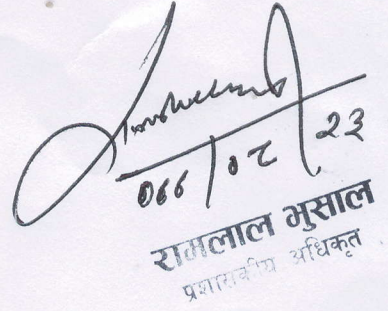 ०६६/०८/२३
रामलाल भुसाल
प्रशासकीय अधिकृत